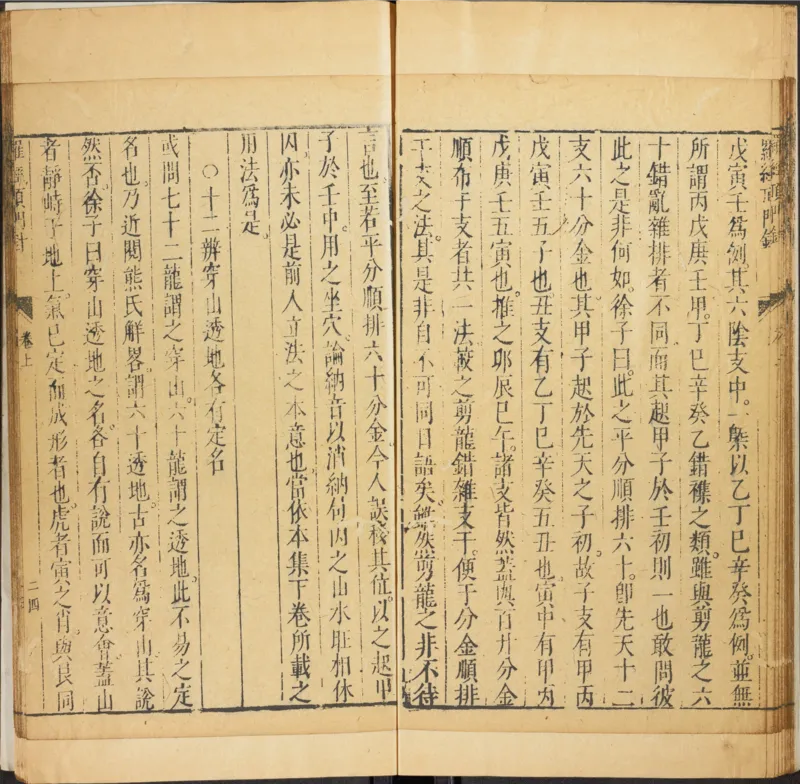 羅經頂門針
戊寅壬爲例其六陰支中一槩以乙丁巳辛癸爲例並無
所謂丙戊庚壬甲丁巳辛癸乙錯襍之類雖與剪龍之六
十錯亂雜排者不同而其起甲子於壬初則一也敢問彼
此之是非何如徐子曰此之平分順排六十卽先天十二
支六十分金也其甲子起於先天之子初故子支有甲丙
戊寅壬五子也丑支有乙丁巳辛癸五丑也寅中有甲丙
戊庚壬五寅也推之卯辰巳午諸支皆然蓋與百廿分金
順布于支者共一法較之剪龍錯雜支干便于分金順排
干支之法其是非自不可同日語矣無族剪龍之非不待
言也至若平分順排六十分金今人誤移其位以之起甲
子於壬中用之坐穴論納音以消納句內之山水旺相休
囚亦未必是前人立法之本意也當依本集下卷所載之
用法爲是
○十二辨穿山透地各有定名
或問七十二龍謂之穿山六十龍謂之透地此不易之定
名也乃近閱熊氏解畧謂六十透地古亦名爲穿山其說
然否徐子曰穿山透地之名各自有說而可以意會蓋山
者靜峙于地上氣已定而成形者也虎者寅之肖與艮同
羅經頂門針
卷上
二四